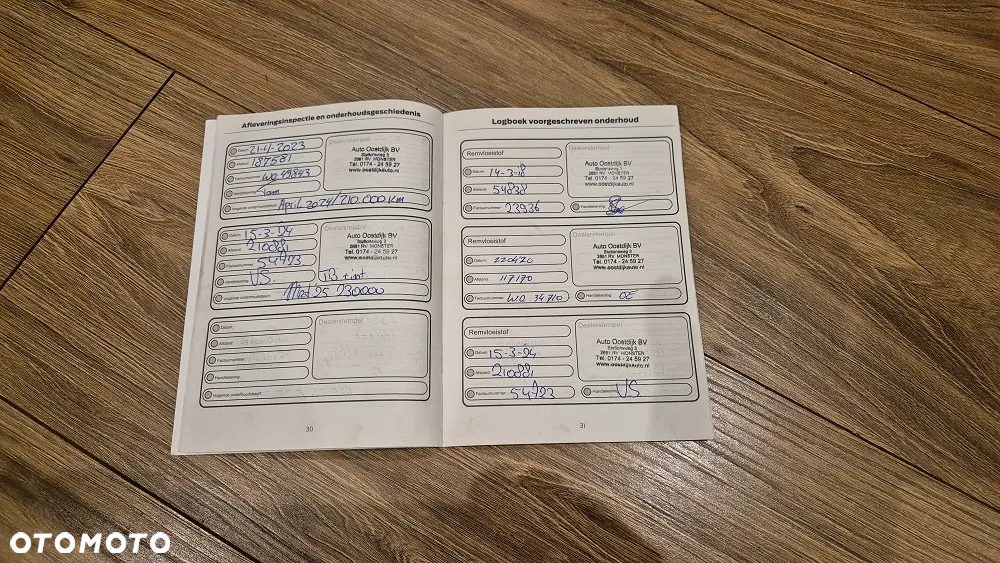 Afleveringsinspectie en onderhoudsgeschiedenis
Datum: 21-4-2023
Afstand: 187581
Factuurnummer: WO 49843
Handtekening:
Volgende onderhoudsbeurt: April 2024/210.000 km
Dealerstempel
Auto Oostdijk BV
Stationsweg 3
2681 RV MONSTER
Tel. 0174 - 24 59 27
www.oostdijkauto.nl
Datum: 15-3-24
Afstand: 210881
Factuurnummer: 54723
Handtekening: VS
Volgende onderhoudsbeurt: Mrt 25 230000
Dealerstempel
Auto Oostdijk BV
Stationsweg 3
2681 RV MONSTER
Tel. 0174 - 24 59 27
www.oostdijkauto.nl
Datum:
Afstand:
Factuurnummer:
Handtekening:
Volgende onderhoudsbeurt:
Dealerstempel
30
Logboek voorgeschreven onderhoud
Remvloeistof
Datum: 14-3-18
Afstand: 54838
Factuurnummer: 23936
Dealerstempel
Auto Oostdijk BV
Stationsweg 3
2681 RV MONSTER
Tel. 0174 - 24 59 27
www.oostdijkauto.nl
Handtekening:
Remvloeistof
Datum: 220420
Afstand: 117170
Factuurnummer: WO 34710
Dealerstempel
Auto Oostdijk BV
Stationsweg 3
2681 RV MONSTER
Tel. 0174 - 24 59 27
www.oostdijkauto.nl
Handtekening: OE
Remvloeistof
Datum: 15-3-24
Afstand: 210881
Factuurnummer: 54723
Dealerstempel
Auto Oostdijk BV
Stationsweg 3
2681 RV MONSTER
Tel. 0174 - 24 59 27
www.oostdijkauto.nl
Handtekening: VS
31
OTOMOTO